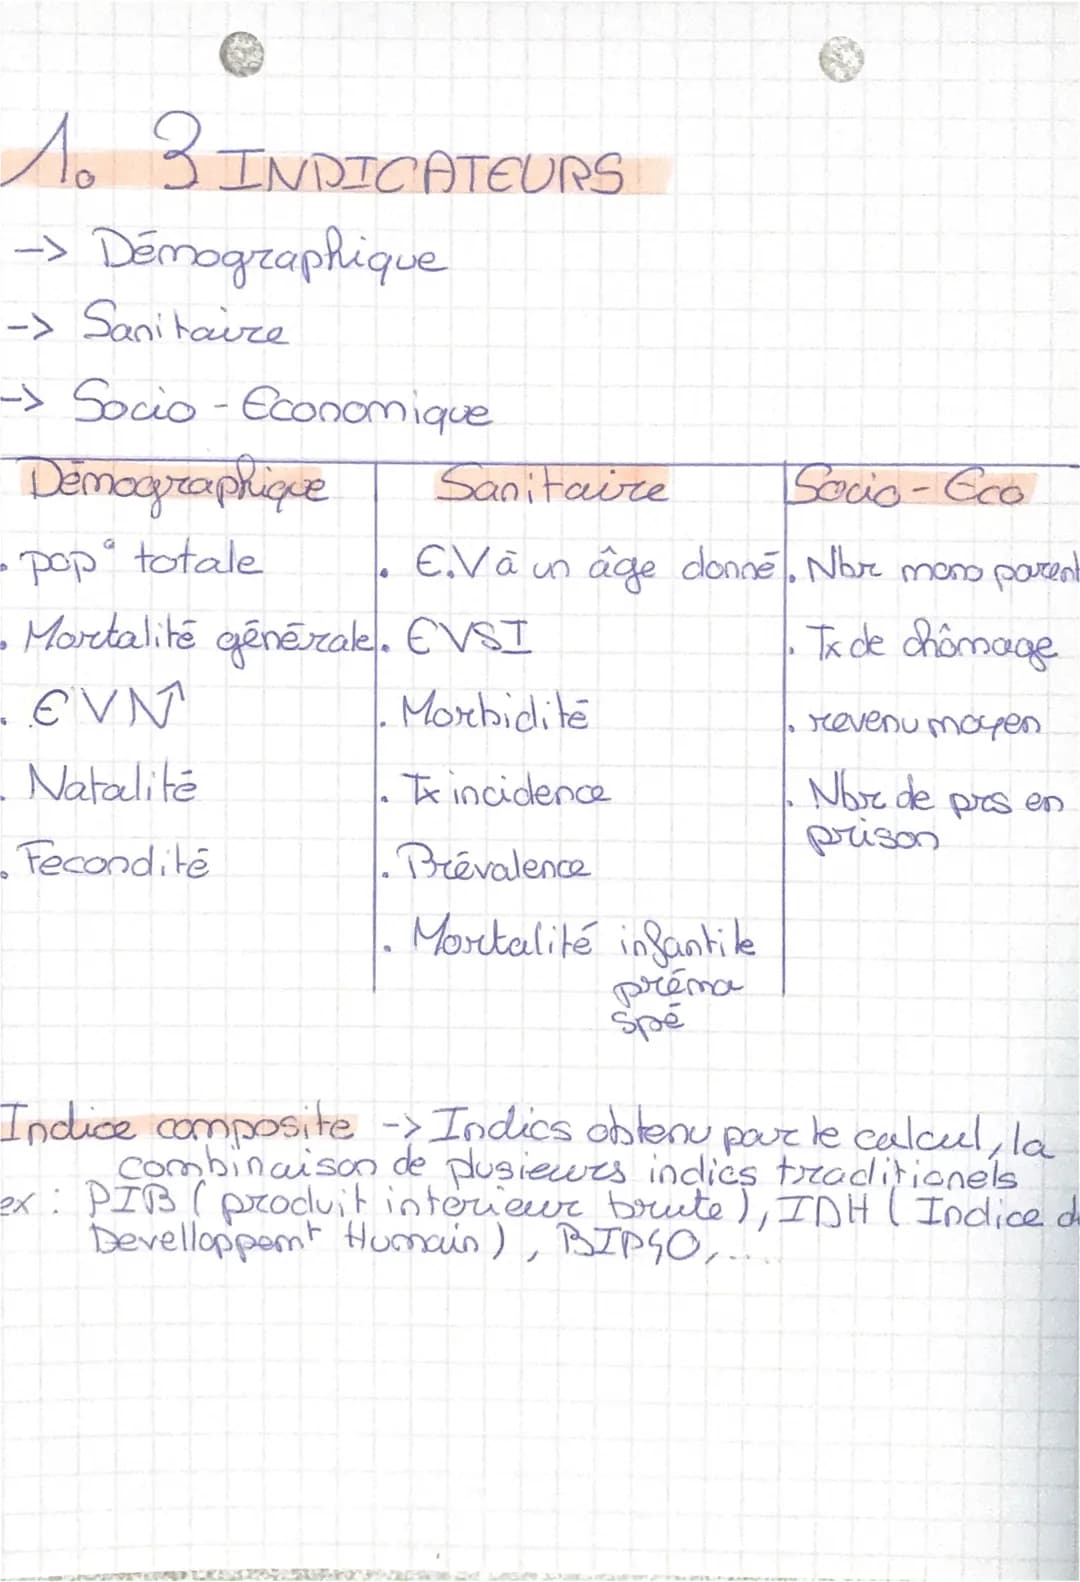 1. 3 INDICATEURS
-> Démographique
-> Sanitaire
-> Socio-Economique
Démographique
. pop° totale
. Mortalité générale
. EVN↑
. Natalité
. Fecondité
Sanitaire
. E.V à un âge donné
. EVSI
. Morbidité
. Tx incidence
. Prévalence
. Mortalité infantile
préma
spé
Socio-Eco
. Nbr mono parent
. Tx de chômage
. revenu moyen
. Nbr de prs en
prison
Indice composite -> Indics obtenu par le calcul, la
combinaison de plusieurs indics traditionels
ex : PIB (produit interieur brute), IDH (Indice d
Develloppemt Humain), BIP40,....